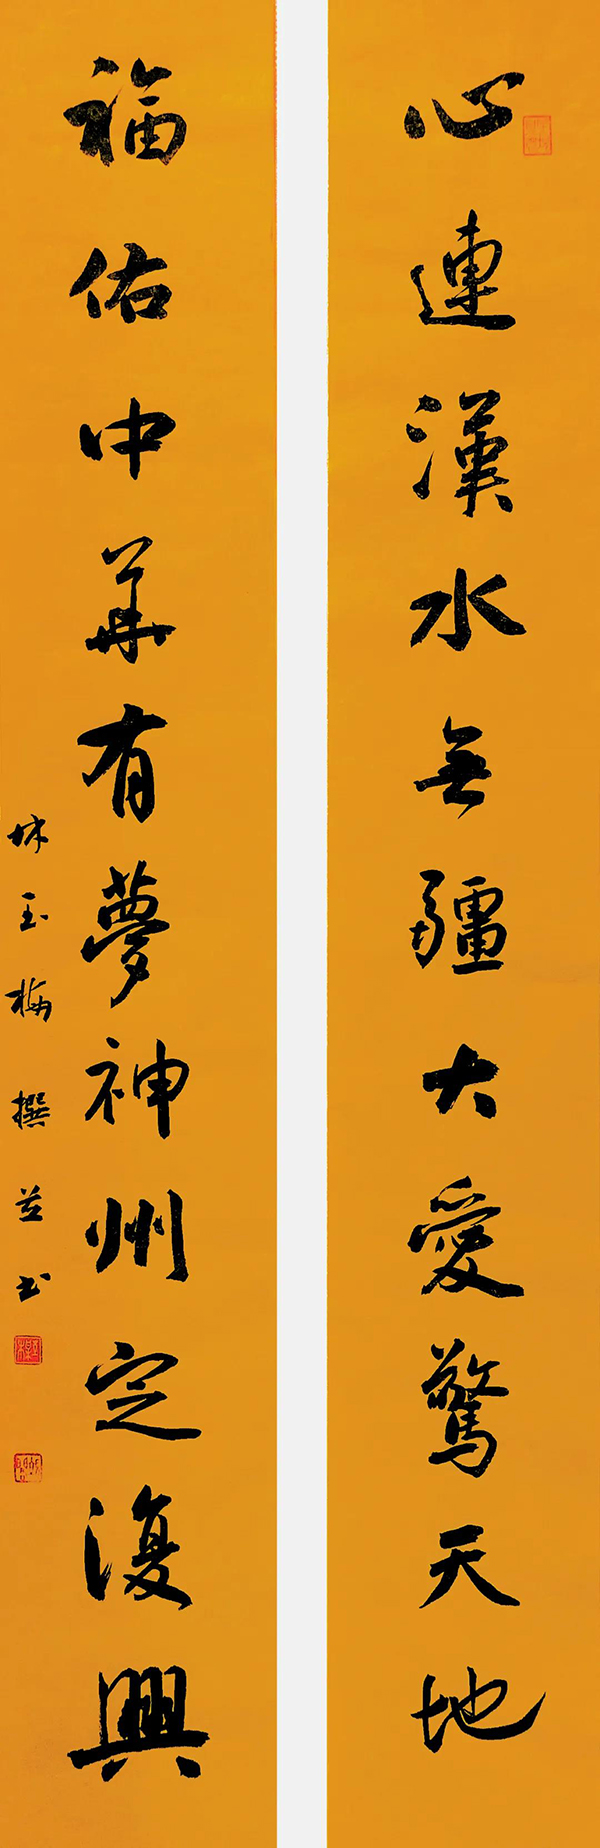 心連漢水無疆大愛驚天地
福佑中華有夢神州定復興
林玉梅撰並书